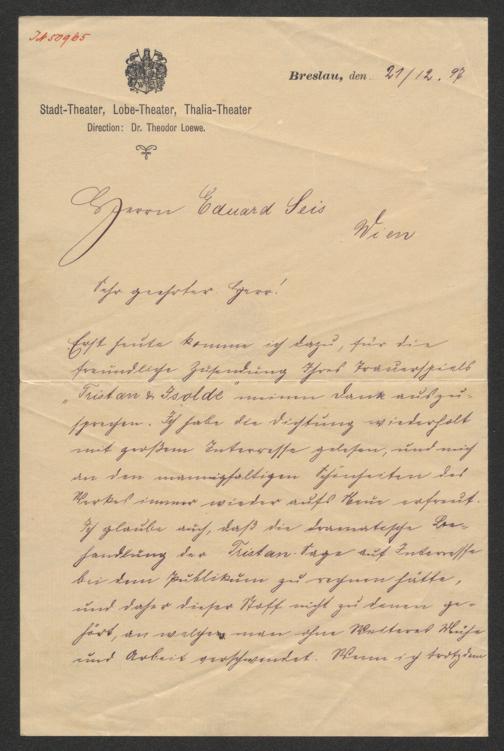 IN 50965
Breslau, den 21/12. 97
Stadt-Theater, Lobe-Theater, Thalia-Theater
Direction: Dr. Theodor Loewe.
Herrn Eduard Seis
Wien
Sehr geehrter Herr!
Erst heute komme ich dazu, für die
freundliche Zusendung Ihres Trauerspiels
„Tristan & Isolde" meinen Dank auszu-
sprechen. Ich habe die Dichtung wiederholt
mit großem Interresse gelesen, und mich
an den mannigfaltigen Schönheiten des
Werkes immer wieder aufs Neue erfreut.
Ich glaube auch, daß die dramatische Be-
handlung der Tristan-Sage auf Interesse
bei dem Publikum zu rechnen hätte,
und daher dieser Stoff nicht zu denen ge-
hört, an welchen man ohne Weiteres Mühe
und Arbeit verschwendet. Wenn ich trotzdem